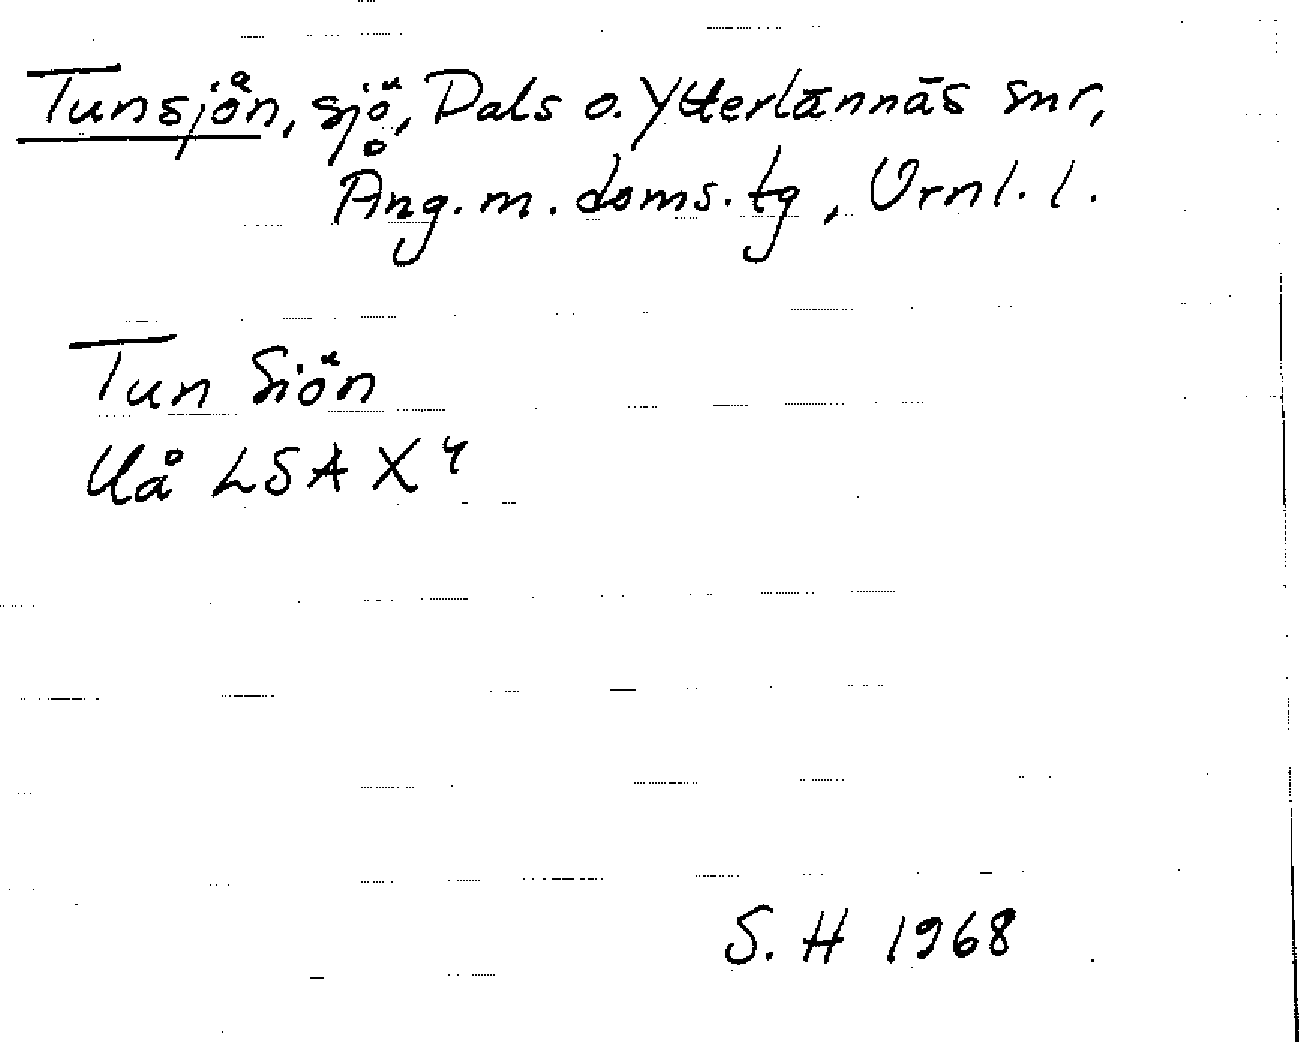 Tunsjön, sjö, Dals o. Ytterlännäs snr,
Ång. m. doms. tg, Vrnl. l.
Tun Siön
Uå LSA X 4
S. H 1968